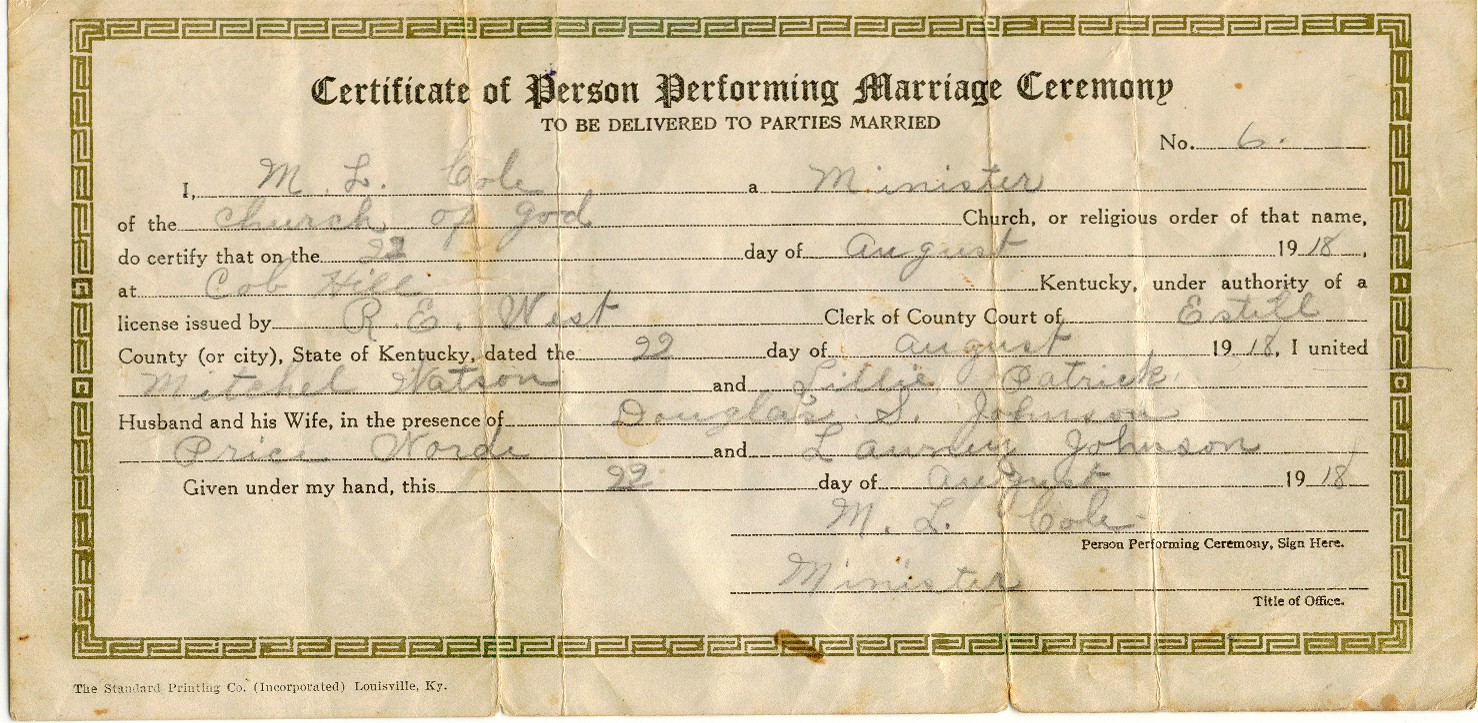 Certificate of Person Performing Marriage Ceremony
TO BE DELIVERED TO PARTIES MARRIED
No. 6.
I, M. L. Cole a Minister
of the church of god Church, or religious order of that name,
do certify that on the 22 day of August 1918,
at Cob Hill Kentucky, under authority of a
license issued by R. E. West Clerk of County Court of Estill
County (or city), State of Kentucky, dated the 22 day of August 1918, I united
Mitchel Watson and Lillie Patrick
Husband and his Wife, in the presence of Douglas S. Johnson
Price and Johnson
Given under my hand, this 22. day of August 1918
M. L. Cole
Person Performing Ceremony, Sign Here.
Minister
Title of Office.
The Standard Printing Co. (Incorporated) Louisville, Ky.